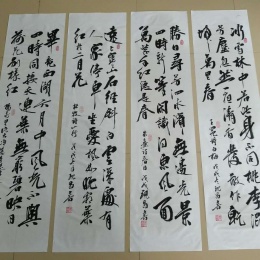 冰雪林中著此身不同桃李混
芳塵忽然一夜清香發散作乾
坤萬里春
勝日尋芳泗水濱無邊光景
一時新等閒識得東風面
萬紫千紅總是春
遠上寒山石徑斜白雲深處有
人家停車坐愛楓林晚霜葉
紅於二月花
畢竟西湖六月中風光不與
四時同接天蓮葉無窮碧映日
荷花別樣紅